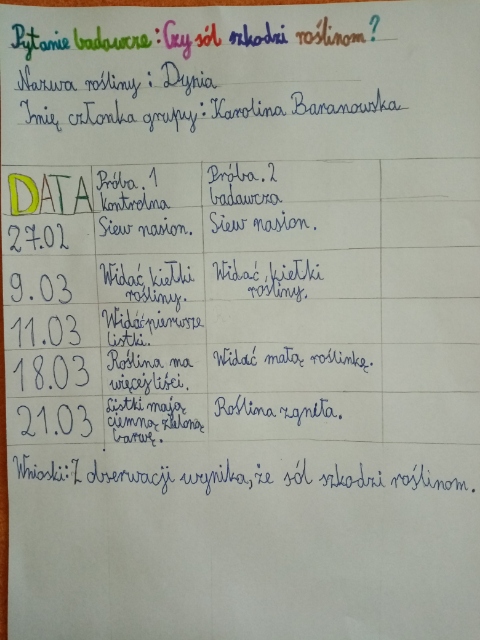 Pytanie badawcze: Czy sól szkodzi roślinom?
Nazwa rośliny: Dynia
Imię członka grupy: Karolina Baranowska
DATA
Próba. 1
kontrolna
Próba. 2
badawcza
27.02
Siew nasion.
Siew nasion.
9.03
Widać kiełki
rośliny.
Widać kiełki
rośliny.
11.03
Widać pierwsze
listki.
18.03
Roślina ma
więcej liści.
Widać małą roślinkę.
21.03
Listki mają
ciemną zieloną
barwę.
Roślina zgnęła.
Wnioski: Z obserwacji wynika, że sól szkodzi roślinom.